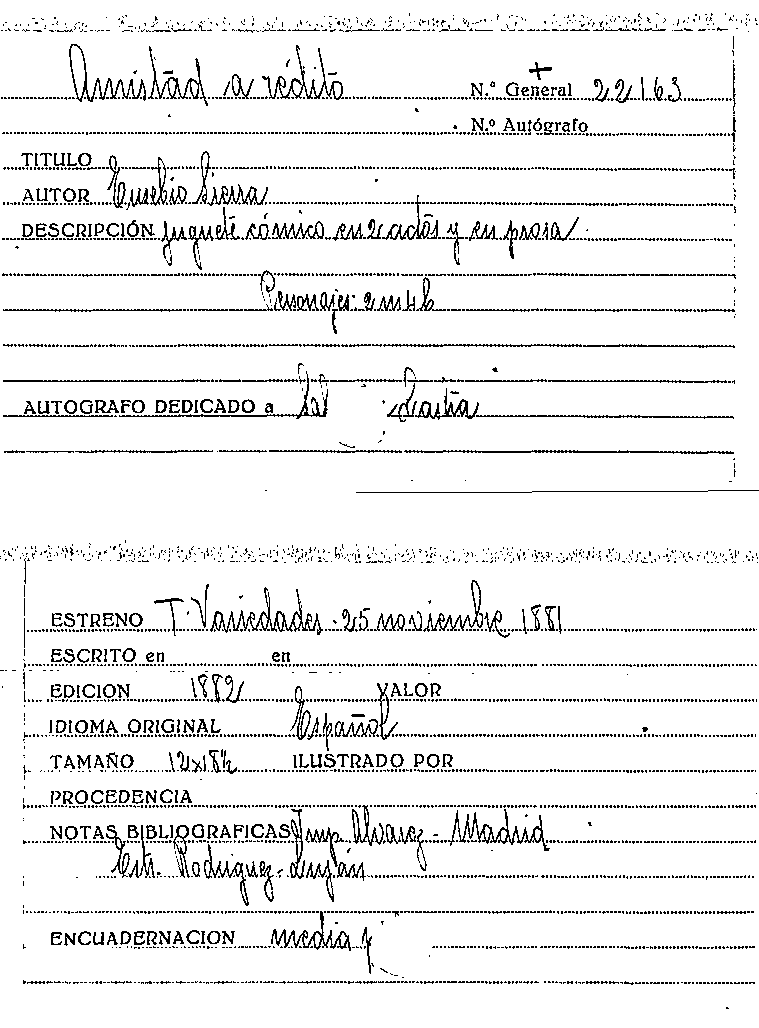 Amistad a crédito N.º General 22163
N.º Autógrafo
TITULO
AUTOR Eusebio Sierra
DESCRIPCIÓN juguete cómico en 2 actos y en prosa
Personajes: 2 m 4 h
AUTOGRAFO DEDICADO a
ESTRENO T. Variedades - 25 noviembre 1881
ESCRITO en en
EDICION 1882 VALOR
IDIOMA ORIGINAL Español
TAMAÑO 12x18½ ILUSTRADO POR
PROCEDENCIA
NOTAS BIBLIOGRAFICAS Imp. Alvarez - Madrid
Estr. Rodriguez - Luján
ENCUADERNACION media